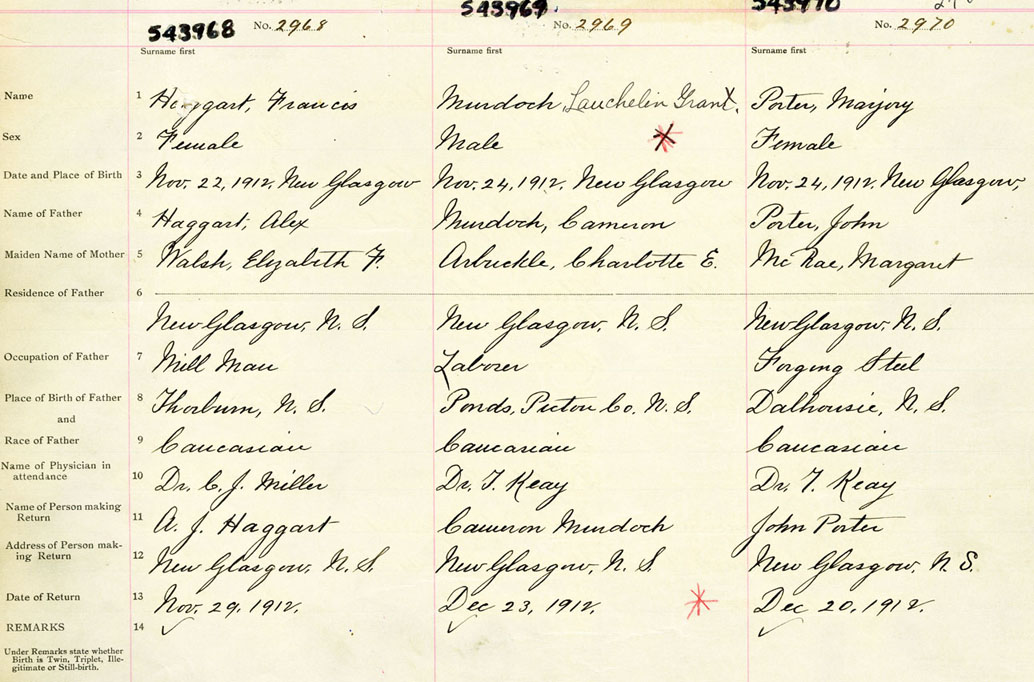 543968 No. 2968 543969. No. 2969 543970 No. 2970
Surname first Surname first Surname first
Name 1 Haggart, Francis Murdoch, Lauchelin Grant. Porter, Marjory
Sex 2 Female Male Female
Date and Place of Birth 3 Nov. 22, 1912, New Glasgow Nov. 24, 1912, New Glasgow Nov. 24, 1912. New Glasgow,
Name of Father 4 Haggart, Alex Murdoch, Cameron Porter, John
Maiden Name of Mother 5 Walsh, Elizabeth F. Arbuckle, Charlotte E. Mc Rae, Margaret
Residence of Father 6
New Glasgow, N. S. New Glasgow, N. S. New Glasgow, N. S.
Occupation of Father 7 Mill Man Laborer Forging Steel
Place of Birth of Father 8 Thorburn, N. S. Ponds, Pictou Co. N. S. Dalhousie, N. S.
and
Race of Father 9 Caucasian Caucasian Caucasian
Name of Physician in
attendance 10 Dr. C. J. Miller Dr. T. Keay Dr. T. Keay
Name of Person making
Return 11 A. J. Haggart Cameron Murdoch John Porter
Address of Person mak-
ing Return 12 New Glasgow, N. S. New Glasgow, N. S. New Glasgow, N. S.
Date of Return 13 Nov. 29, 1912. Dec 23, 1912. Dec 20, 1912.
REMARKS 14
Under Remarks state whether
Birth is Twin, Triplet, Ille-
gitimate or Still-birth.